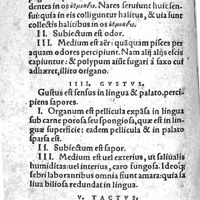 dentes in os ἠθμοειδές. Nares seruiunt huic sen-
sui: quia in eis colliguntur halitus, & uia sunt
collectis halitibus in os ἠθμοειδές.
II. Subiectum est odor.
III. Medium est aër: quāquam pisces per
aquam odores percipiunt. Nam alij alijs escis
capiuntur: & polypum aiūt fugari à saxo cui
adhæret, illito origano.
IIII. GVSTVS.
Gustus est sensus in lingua & palato, perci-
piens sapores.
I. Organum est pellicula expāsa in lingua
sub carne porosa seu spongiosa, quæ est in lin-
guæ superficie: eadem pellicula & in palato
sparsa est.
II. Subiectum est sapor.
III. Medium est uel exterius, ut saliualis
humiditas: uel interius, caro fungosa. Ideo que
febri laborantibus omnia sunt amara: quia sa-
liua biliosa redundat in lingua.
V. TACTVS.